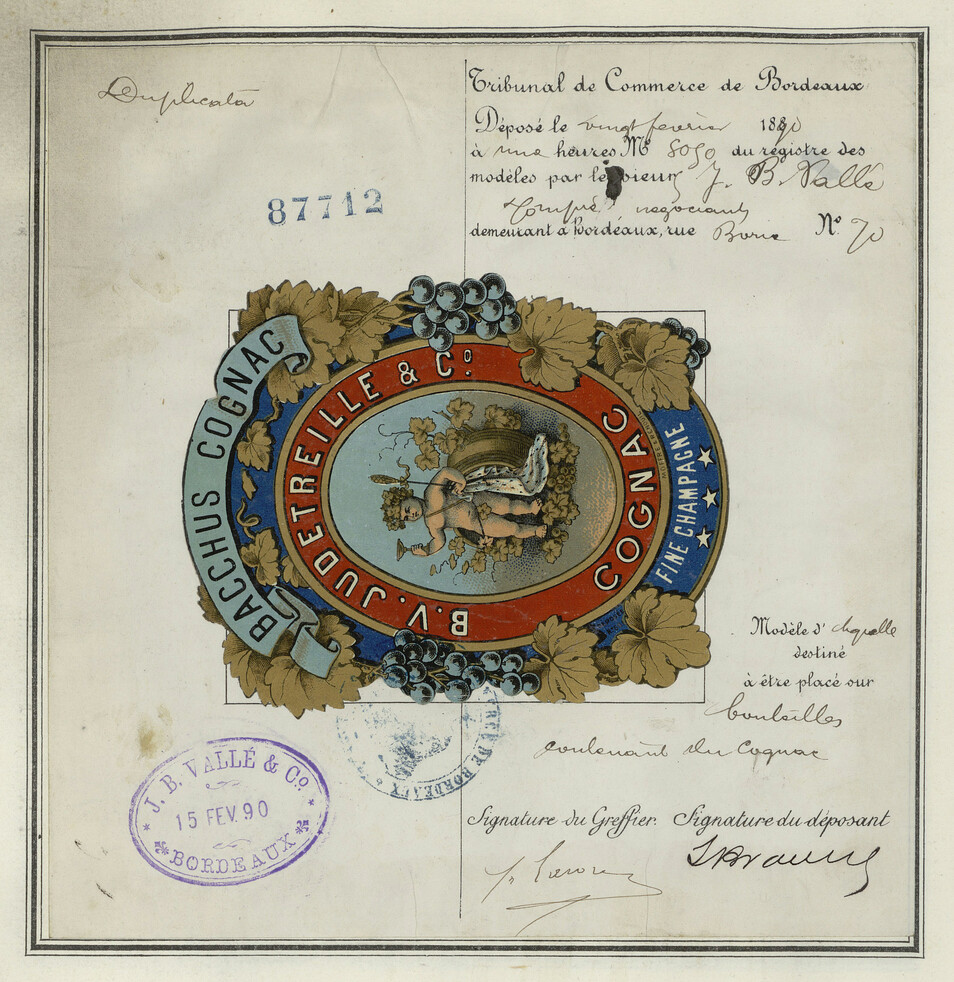 Duplicata
Tribunal de Commerce de Bordeaux
Déposé le vingt fevrier 1890
à une heures No 8050 du registre des
modèles par le sieur J. B. Vallé
negociant
demeurant à Bordeaux, rue Borie No 70
87712
BACCHUS COGNAC
B.V. JUDETREILLE & Co.
COGNAC
FINE CHAMPAGNE
Modèle d'
destiné
à être placé sur
bouteilles
contenant du Cognac
DE BORDEAUX
J. B. VALLÉ & Co.
15 FEV. 90
BORDEAUX
Signature du Greffier. Signature du déposant